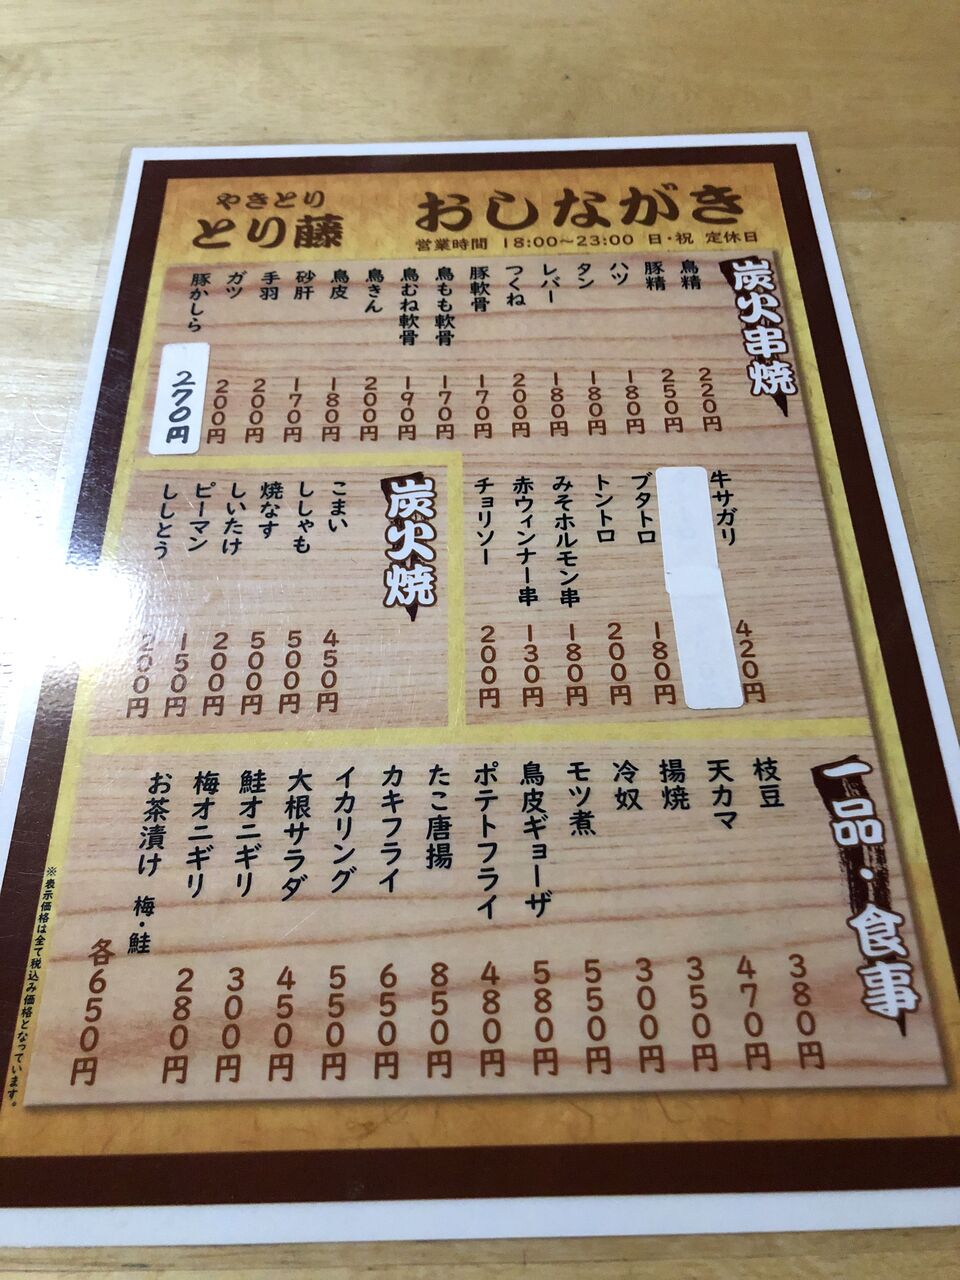 やきとり
とり藤
おしながき
営業時間 18:00〜23:00 日・祝 定休日
炭火串焼
鳥精 220円
豚精 250円
ハツ 180円
タン 180円
レバー 180円
つくね 200円
豚軟骨 170円
鳥もも軟骨 170円
鳥むね軟骨 190円
鳥きん 200円
鳥皮 180円
砂肝 170円
手羽 200円
ガツ 200円
豚かしら 270円
牛サガリ 420円
ブタトロ 180円
トントロ 200円
みそホルモン串 180円
赤ウィンナー串 130円
チョリソー 200円
炭火焼
こまい 450円
ししゃも 500円
焼なす 500円
しいたけ 200円
ピーマン 150円
ししとう 200円
一品・食事
枝豆 380円
天カマ 470円
揚焼 350円
冷奴 300円
モツ煮 550円
鳥皮ギョーザ 580円
ポテトフライ 480円
たこ唐揚 850円
カキフライ 650円
イカリング 550円
大根サラダ 450円
鮭オニギリ 300円
梅オニギリ 280円
お茶漬け 梅・鮭 各650円
※表示価格は全て税込み価格となっています。